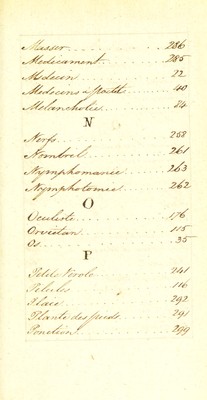 Masser 286
Medicament 285
Médecin 22
40
Melancholie 24
N
Nerfs 258
Nombril 261
Nymphomanie 263
Nymphotomie 262
O
Oculiste 176
Orviétan 115
Os 35
P
Petite Vérole 241
Pilules 116
Place 292
Plante des pieds 291
Ponction 299